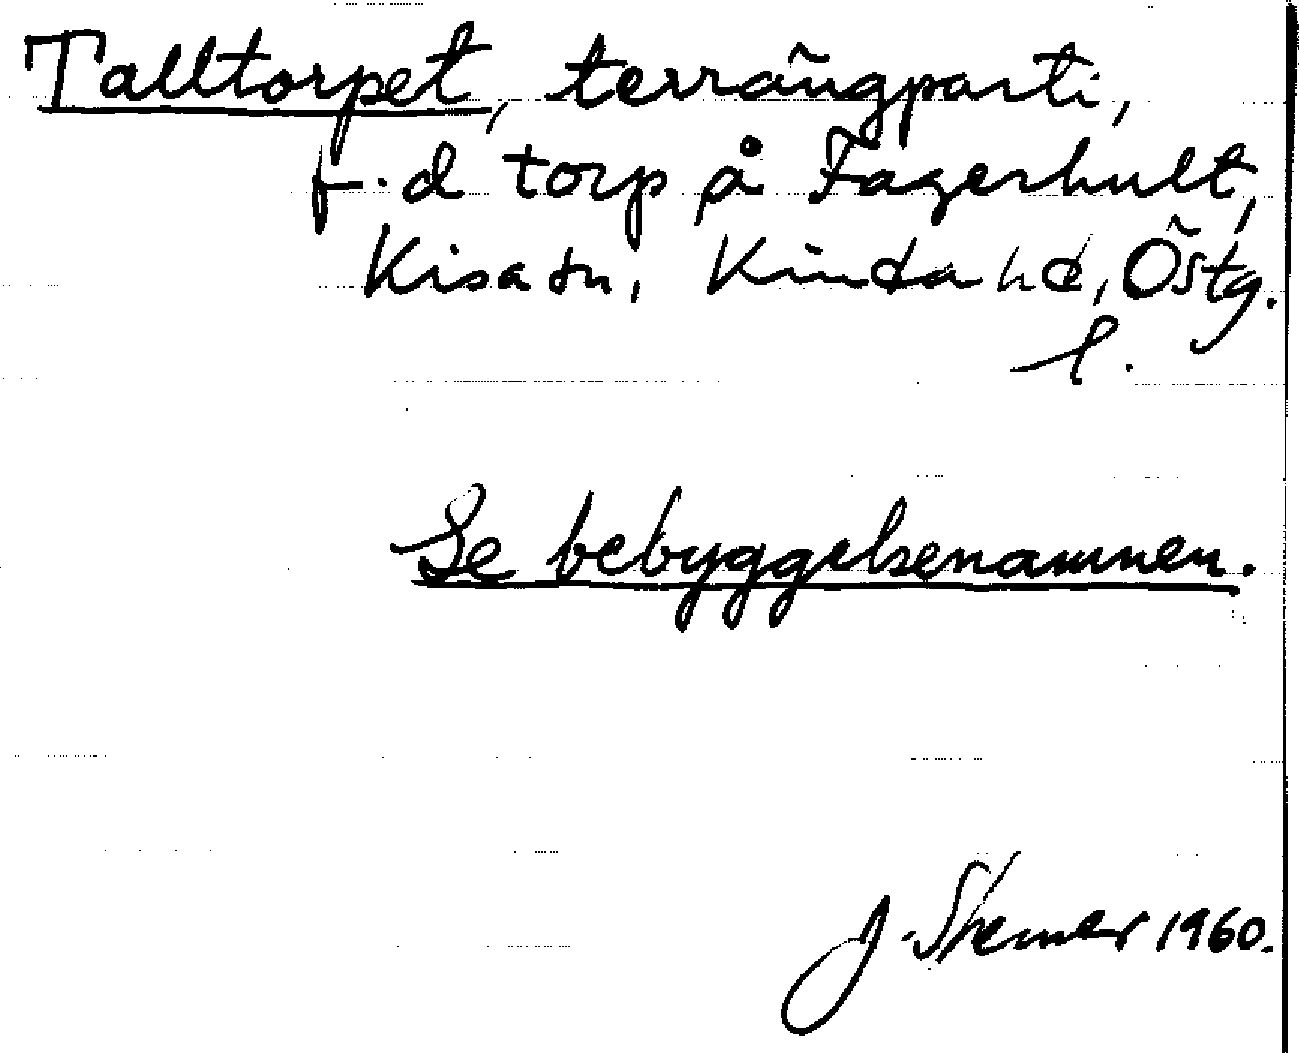 Talltorpet, terrängparti,
f.d torp på Fagerhult,
Kisa sn, Kinda hd, Östg.
l.
Se bebyggelsenamnen.
J. 1960.